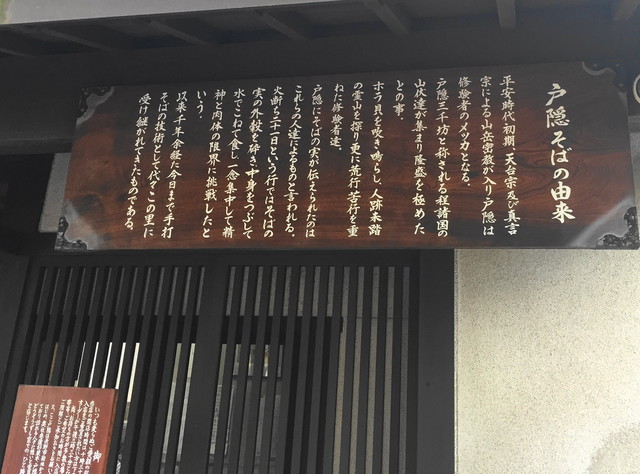 戸隠そばの由来
平安時代初期、天台宗及び真言
宗による山岳宗教が入り戸隠は
修験者のメッカとなる。
戸隠三千坊と称される程諸国の
山伏達が集まり隆盛を極めた
との事。
ホラ貝を吹き鳴らし人跡未踏
の霊山を探り更に荒行苦行を重
ねた修験者達。
戸隠にそばの実が伝えられたのは
これらの人達によるものと言われる。
火断ち二十一日という行ではそばの
実の外殻を砕き中身をつぶして
水でこねて食し一念集中して、精
神と肉体の限界に挑戦したと
いう。
以来千年余経た今日まで手打
そばの技術として代々この里に
受け継がれてきたものである。